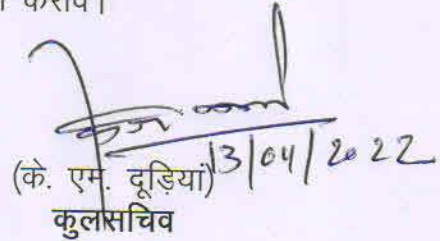 करावें।
13/04/2022
(के. एम. दूड़ियां)
कुलसचिव